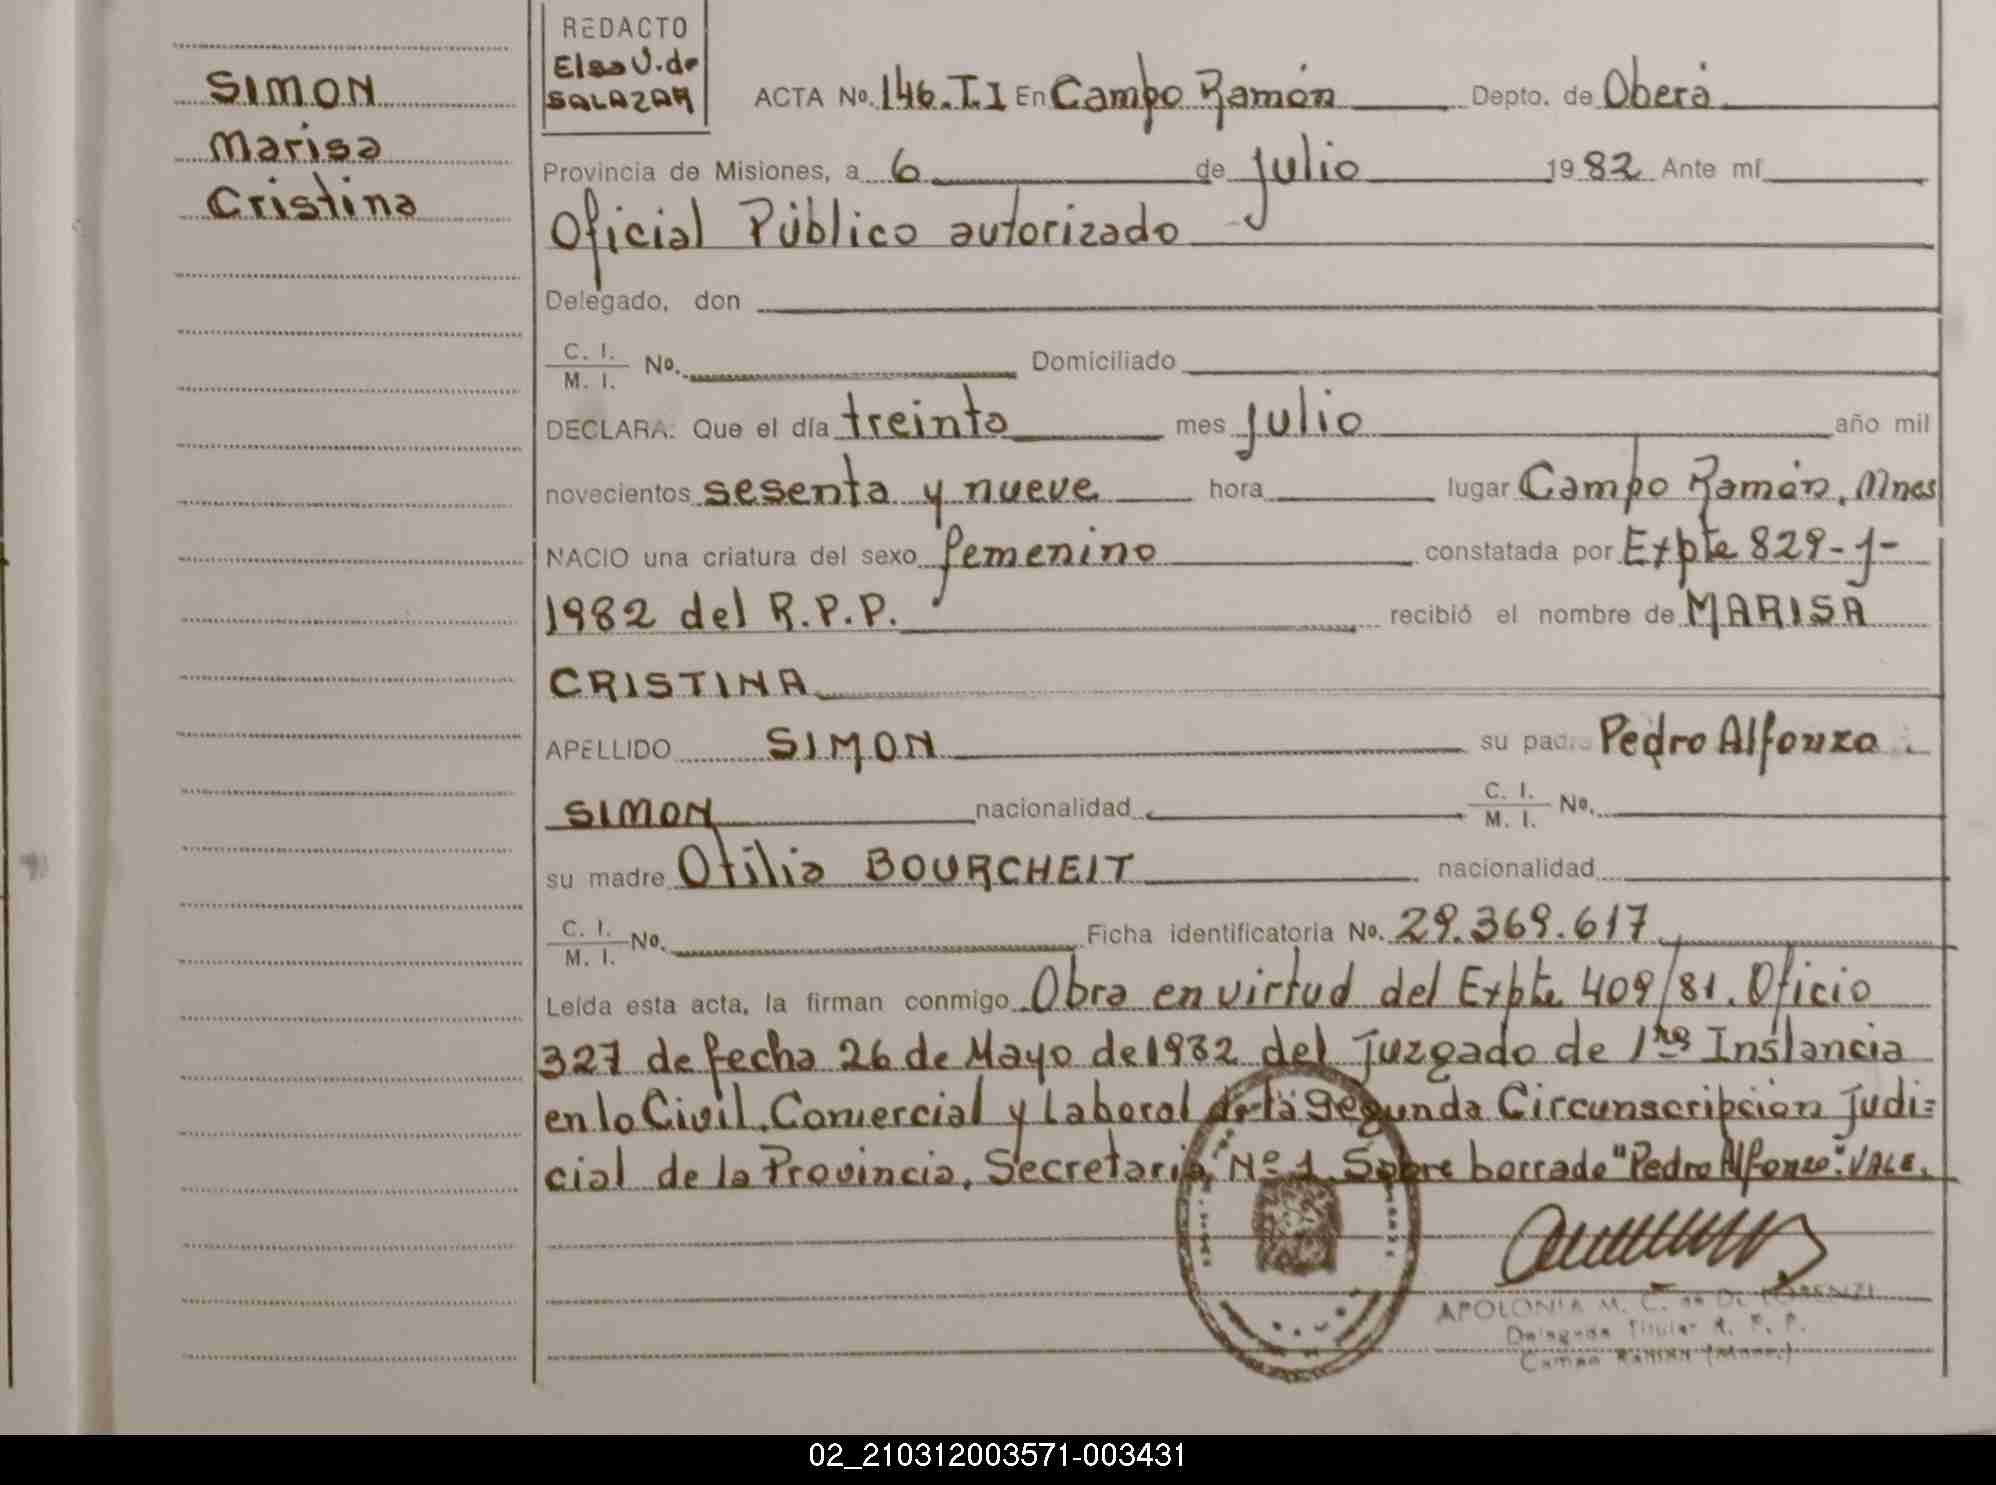 SIMON
Marisa
Cristina
REDACTO
Elsa V. de
SALAZAR
ACTA No. 146. T. I En Campo Ramón Depto. de Oberá
Provincia de Misiones, a 6 de julio 1982 Ante mí
Oficial Público autorizado
Delegado, don
C. I. / M. I. No. Domiciliado
DECLARA: Que el día treinta mes julio año mil
novecientos sesenta y nueve hora lugar Campo Ramón, Mnes
NACIO una criatura del sexo femenino constatada por Expte 829-J-
1982 del R.P.P. recibió el nombre de MARISA
CRISTINA
APELLIDO SIMON su padre Pedro Alfonzo
SIMON nacionalidad C. I. / M. I. No.
su madre Otilia BOURCHEIT nacionalidad
C. I. / M. I. No. Ficha identificatoria No. 29.369.617
Leída esta acta, la firman conmigo Obra en virtud del Expte 409/81. Oficio
327 de fecha 26 de Mayo de 1982 del Juzgado de 1ra Instancia
en lo Civil, Comercial y Laboral de la Segunda Circunscripción Judi=
cial de la Provincia, Secretaria Nº 1. Sobre borrado "Pedro Alfonzo": VALE.
APOLONIA M. C. de DI LORENZI
Delegada Titular R. P. P.
Campo Ramón (Mnes.)
02_210312003571-003431